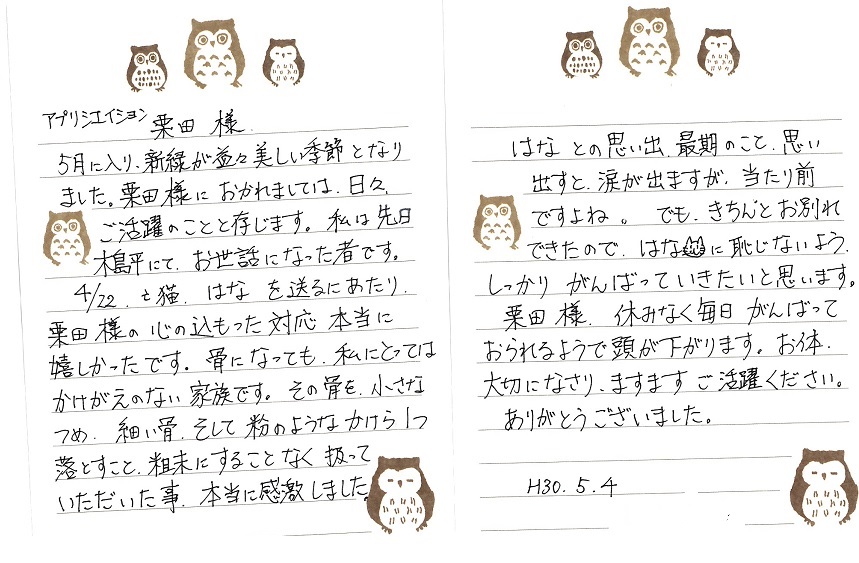 アプリシエイション 栗田 様.
5月に入り、新緑が益々美しい季節となり
ました。栗田様に おかれましては、日々、
ご活躍のことと存じます。私は先日
木島平にて、お世話になった者です。
4/22、 猫、はな を送るにあたり、
栗田様の心の込もった対応 本当に
嬉しかったです。骨になっても、私にとっては
かけがえのない家族です。その骨を、小さな
つめ、細い骨、そして粉のようなかけら1つ
落とすこと、粗末にすることなく扱って
いただいた事、本当に感激しました。
はな との思い出、最期のこと、思い
出すと、涙が出ますが、当たり前
ですよね。でも、きちんとお別れ
できたので、はなに恥じないよう、
しっかり がんばっていきたいと思います。
栗田様、休みなく毎日がんばって
おられるようで頭が下がります。お体、
大切になさり、ますますご活躍ください。
ありがとうございました。
H30.5.4